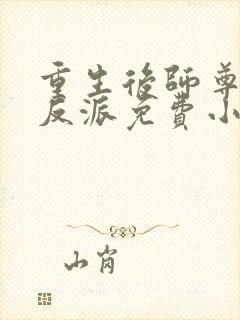 重生後師尊
反派免費小
山肖